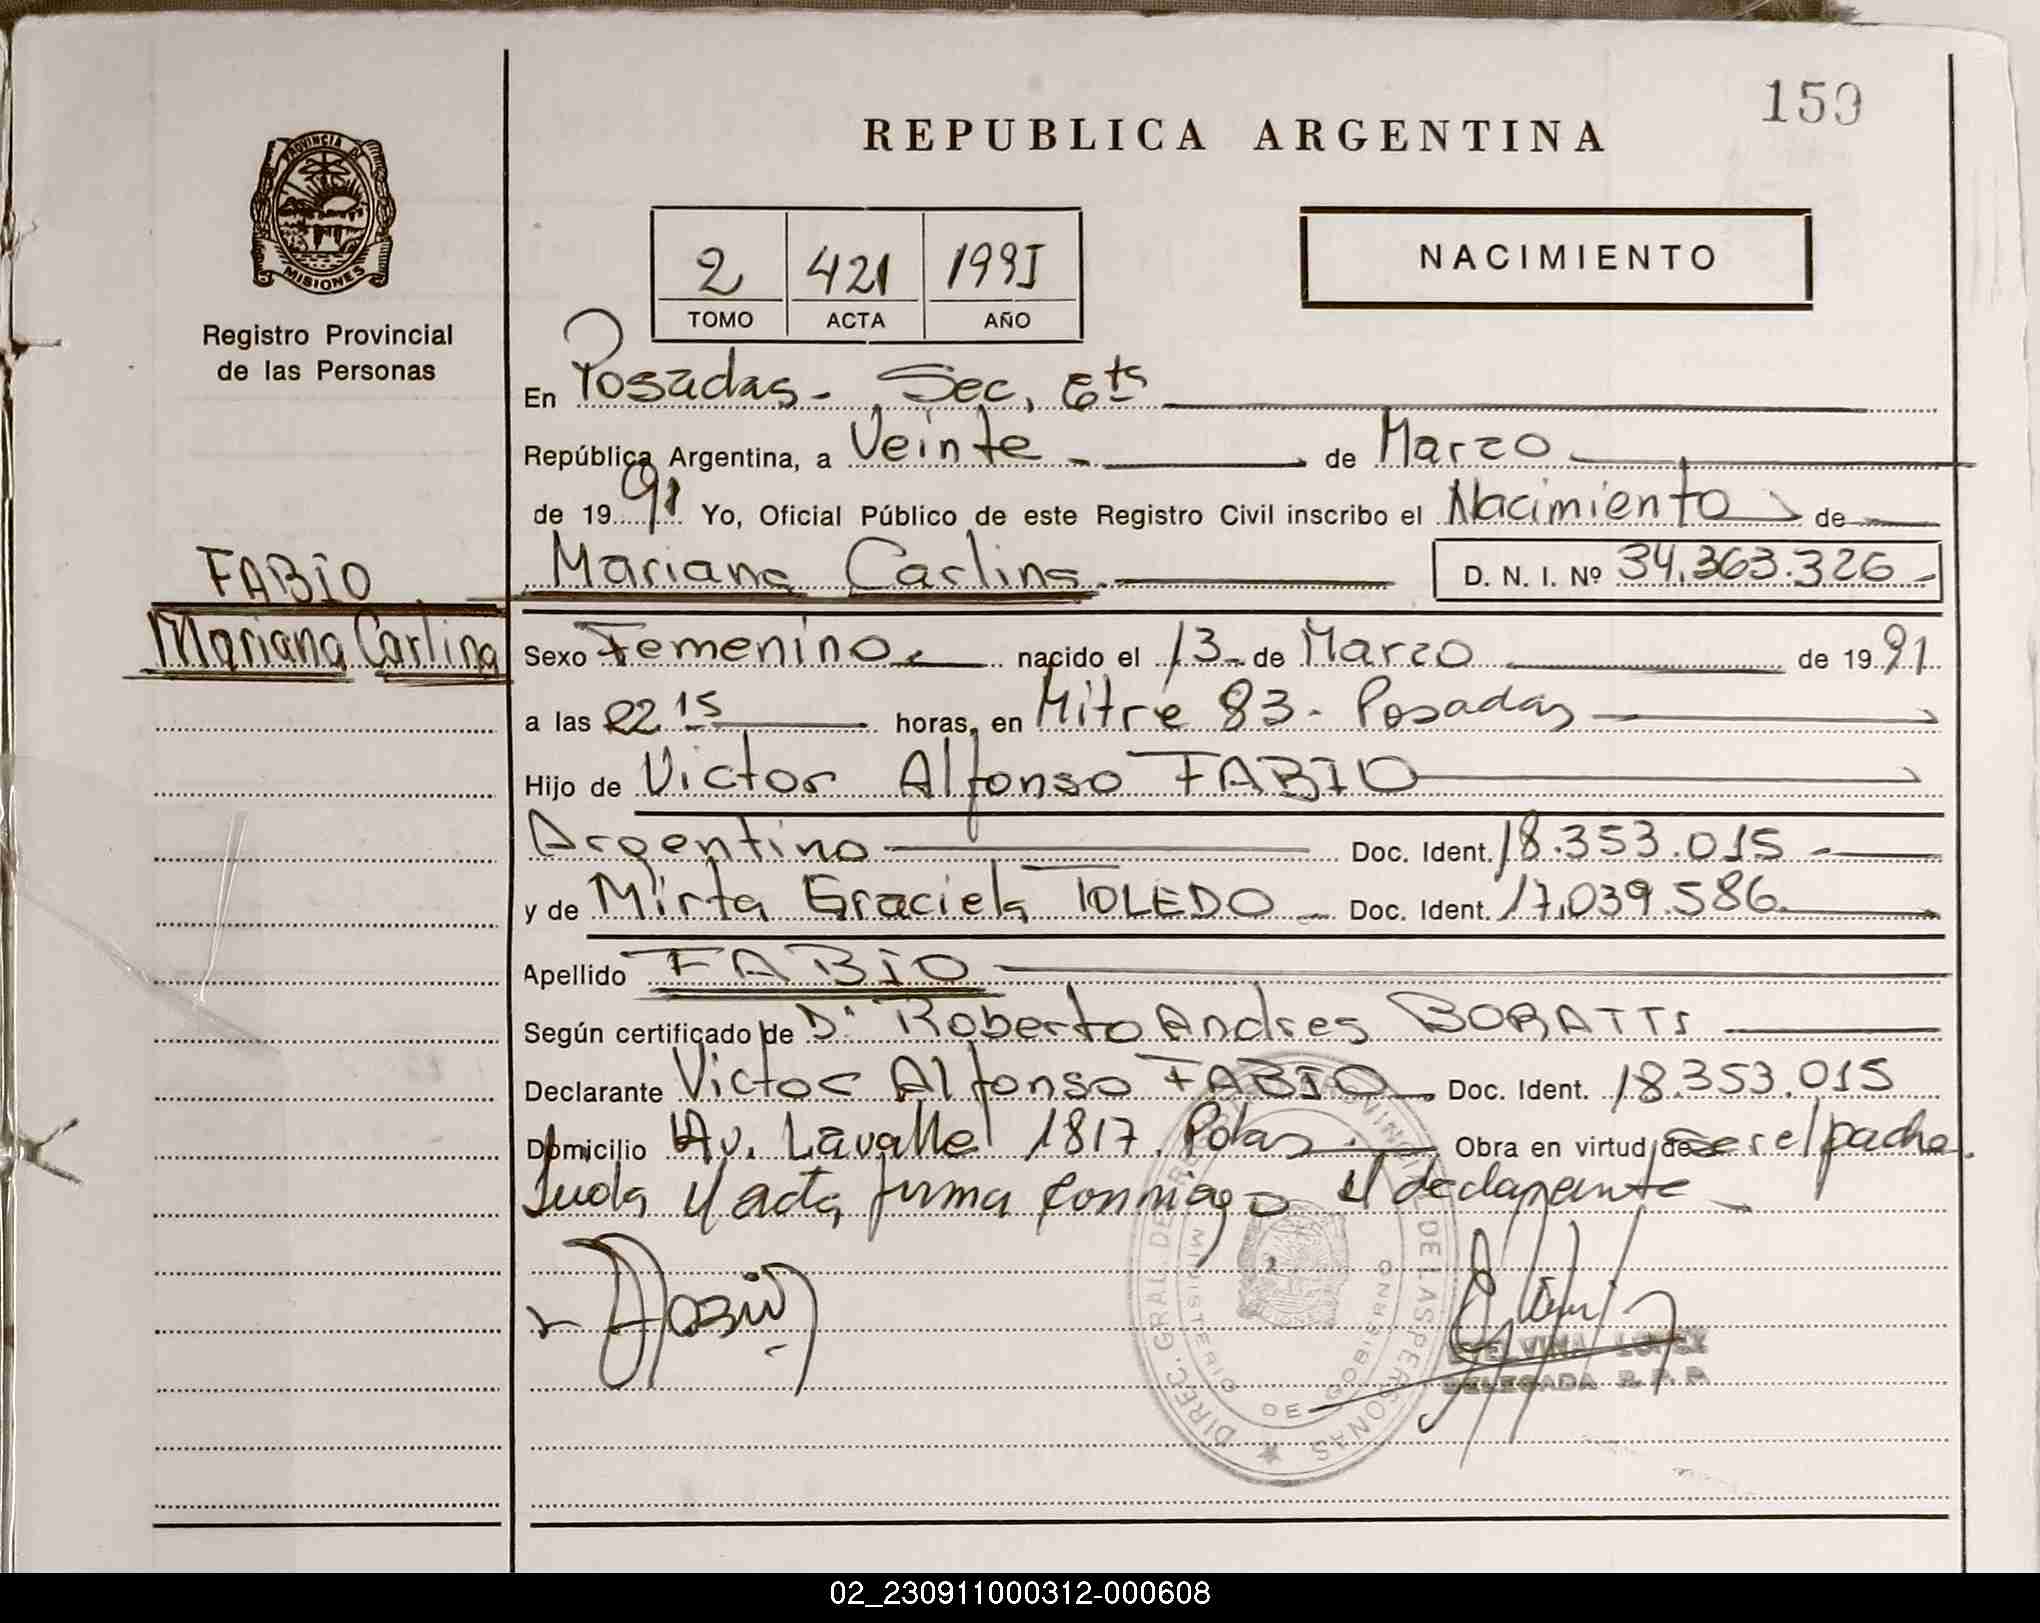 159
REPUBLICA ARGENTINA
PROVINCIA DE
MISIONES
Registro Provincial
de las Personas
2 421 1991
TOMO ACTA AÑO
NACIMIENTO
En Posadas - Sec. 6ta
República Argentina, a Veinte - de Marzo
de 19 91 Yo, Oficial Público de este Registro Civil inscribo el Nacimiento de
FABIO
Mariana Carlina
Mariana Carlina D. N. I. Nº 34.363.326
Sexo Femenino nacido el 13 de Marzo de 19 91
a las 22 15 horas, en Mitre 83 - Posadas
Hijo de Victor Alfonso FABIO
Argentino Doc. Ident. 18.353.015
y de Mirta Graciela TOLEDO Doc. Ident. 17.039.586
Apellido FABIO
Según certificado de Dr Roberto Andres BORATTI
Declarante Victor Alfonso FABIO Doc. Ident. 18.353.015
Domicilio Av. Lavalle 1817 Pdas Obra en virtud de ser el padre
Leida el acta firma conmigo el declarante
Fabio
DIREC. GRAL. DEL REG. PROVINCIAL DE LAS PERSONAS
MINISTERIO DE GOBIERNO
ETELVINA LOPEZ
DELEGADA R. P. P.
02_230911000312-000608